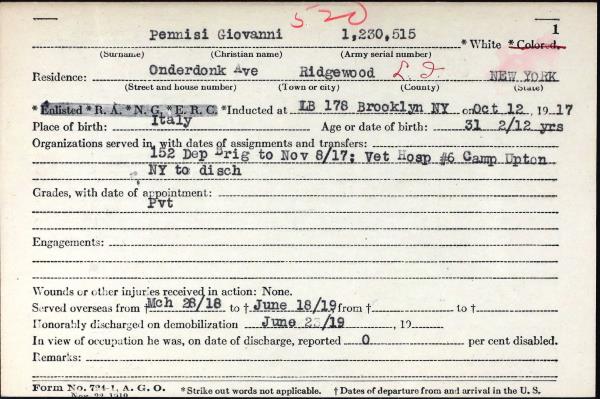 520
1
Pennisi Giovanni 1,230,515 * White * Colored.
(Surname) (Christian name) (Army serial number)
Residence: Onderdonk Ave Ridgewood L. I. NEW YORK
(Street and house number) (Town or city) (County) (State)
* Enlisted * R. A. * N. G. * E. R. C. * Inducted at LB 178 Brooklyn NY on Oct 12, 1917
Place of birth: Italy Age or date of birth: 31 2/12 yrs
Organizations served in, with dates of assignments and transfers:
152 Dep Brig to Nov 8/17; Vet Hosp #6 Camp Upton
NY to disch
Grades, with date of appointment:
Pvt
Engagements:
Wounds or other injuries received in action: None.
Served overseas from † Mch 28/18 to † June 18/19 from † to †
Honorably discharged on demobilization June 23/19, 19
In view of occupation he was, on date of discharge, reported 0 per cent disabled.
Remarks:
Form No. 724-1, A. G. O. * Strike out words not applicable. † Dates of departure from and arrival in the U. S.
Nov. 22, 1919